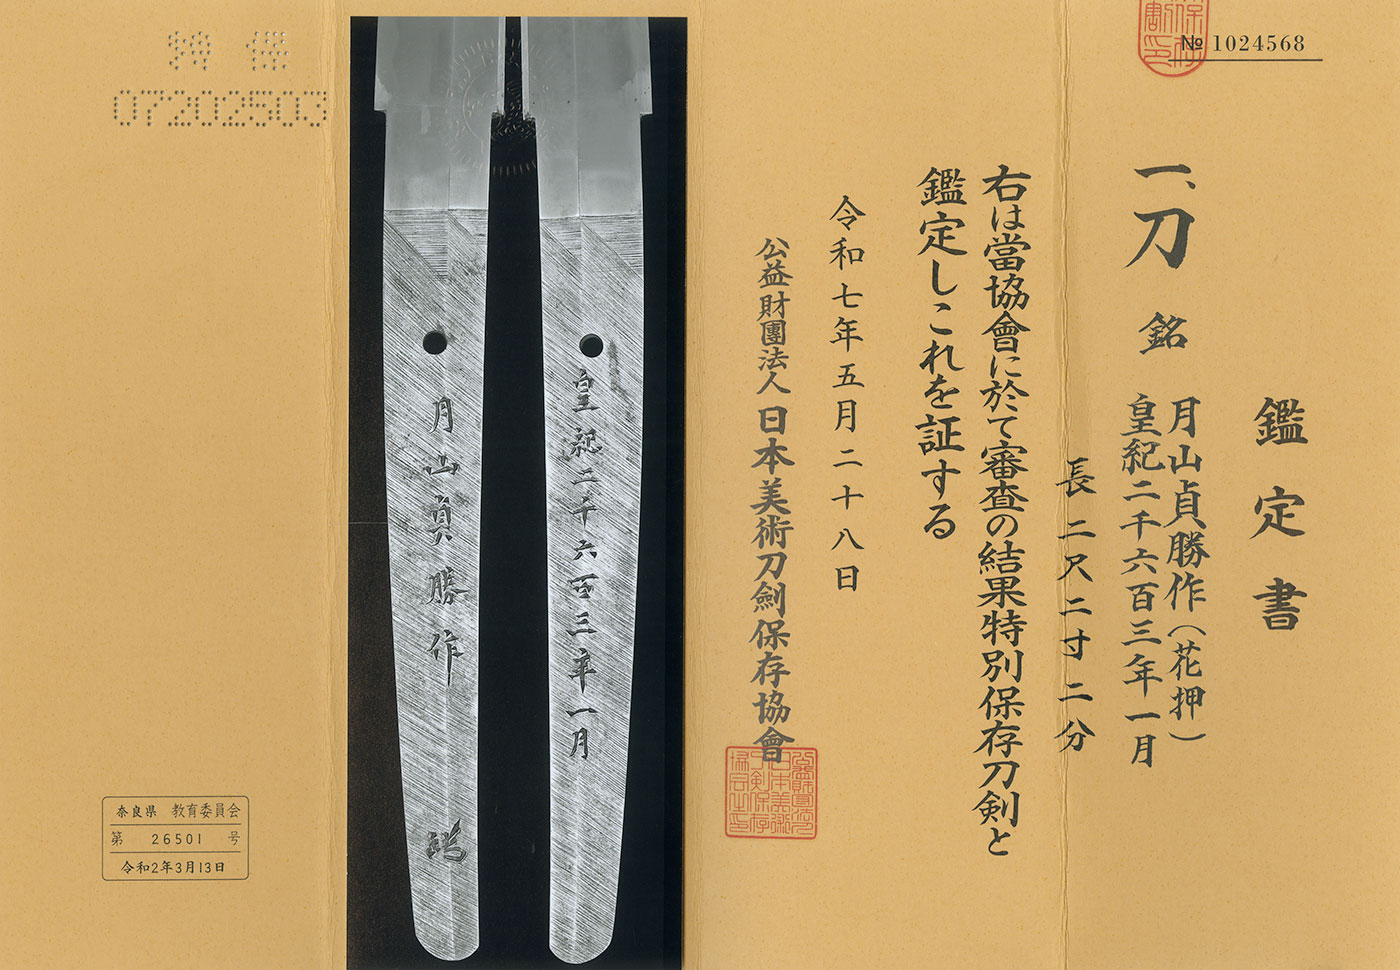 № 1024568
鑑定書
一、刀 銘 月山貞勝作(花押)
皇紀二千六百三年一月
長二尺二寸二分
右は當協會に於て審査の結果特別保存刀剣と
鑑定しこれを証する
令和七年五月二十八日
公益財團法人日本美術刀劍保存協會
皇紀二千六百三年一月
月山貞勝作
特保
07202503
奈良県 教育委員会
第 26501 号
令和2年3月13日